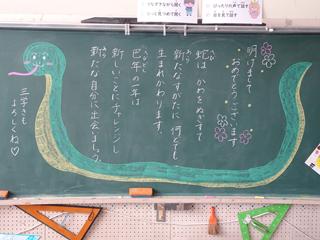 明けまして
おめでとうございます
蛇は かわをぬぎすて
新たなすがたに 何どでも
生まれかわります。
巳年の一年は
新しいことにチャレンジし
新たな自分に出会いましょう。
三学きも
よろしくね♡